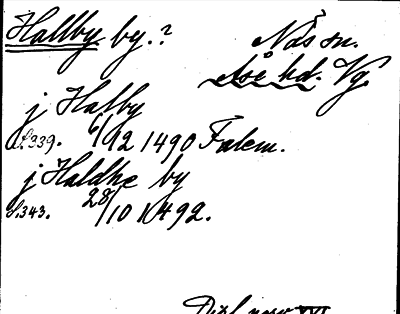 Hallby by.? Nås sn.
Åse hd. Vg.
j Halby
S.339. 6/12 1490 Falem.
j Haldhe by
S.343. 28/10 1492.
Dipl. norv. XVI